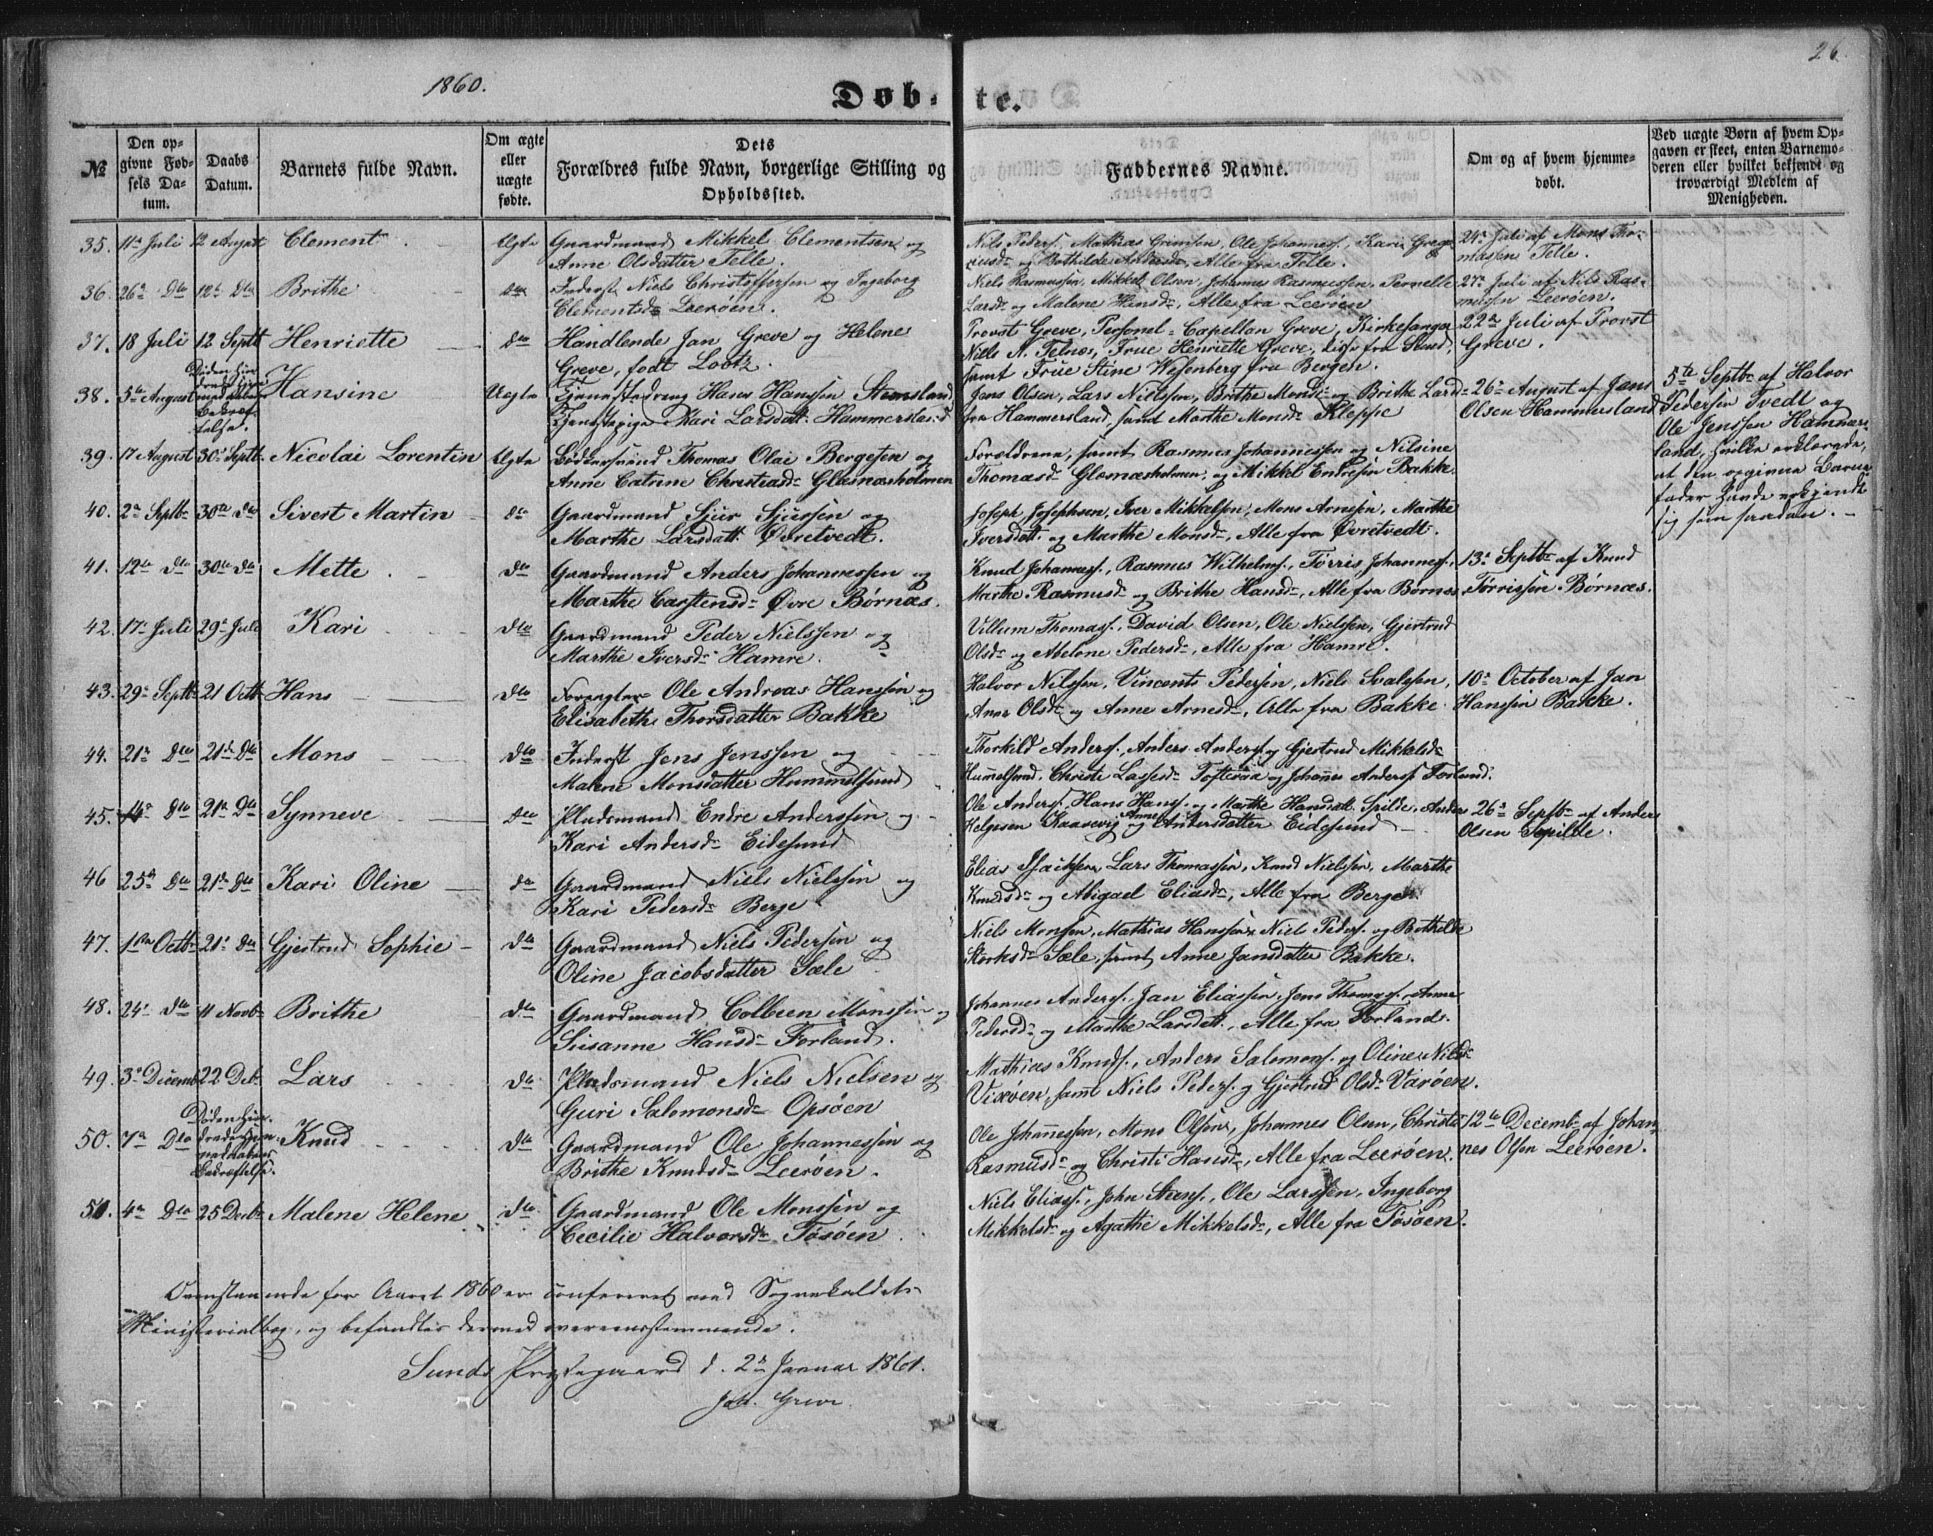 1860.
26
Døb-
te.
№
Den op-
givne Fød-
sels Da-
tum.
Daabs
Datum.
Barnets fulde Navn.
Om ægte
eller
uægte
fødte.
Dets
Forældres fulde Navn, borgerlige Stilling og
Opholdssted.
Faddernes Navne.
Om og af hvem hjemme-
døbt.
Ved uægte Børn af hvem Op-
gaven er skeet, enten Barnemo-
deren eller hvilket bekjendt og
troværdigt Medlem af
Menigheden.
35. 11te Juli 12 August Clement Ægte Gaardmand Mikkel Clementsen og
Anne Olsdatter Telle.
Nils Peders., Mathias Grimsen, Ole Johannes., Kari Greg-
riusdr og Bothilde Andersdr, Alle fra Telle.
24de Juli af Mons Tho-
masen Telle.
36. 26de Dto 12te Dto Brithe dto Inderst Niels Christoffersen og Ingeborg
Clementsdr Leerøen.
Niels Rasmussen, Mikkel Olsen, Johannes Rasmussen, Pernelle
Larsdr og Malene Hansdr, Alle fra Leerøen
27de Juli af Nils Ras-
mussen Leerøen.
37. 18 Juli 12 Septb Henriette dto Handlende Jan Greve og Helene
Greve, født Lootz.
Provst Greve, Personel-Capellan Greve, Kirkesanger
Niels N. Telnæs, Frue Henriette Greve, disse fra Sund,
samt Frue Stine Wesenberg fra Bergen.
22de Juli af Provst
Greve.
38. 5te August Døden hin-
Hansine Uægte Tjenestedreng Hans Hanssen Stamsland
Tjenestepige Kari Larsdatt. Hammersland
Jens Olsen, Lars Nielssen, Brithe Monsdr og Brithe Larsdr
fra Hammersland, samt Marthe Monsdr Kleppe
26de August af Jens
Olsen Hammersland
5te Septbr af Halvor
Pedersen Tvedt og
Ole Jenssen Hammers-
land, hvilke erklærede,
at den opgivne Barne-
fader havde erkjendt
sig som saadan.
39. 17 August 30te Septb. Nicolai Lorentin Ægte Ole Thomas Olai Bergesen og
Anne Catrine Christiansdr Glæsnæsholmen
Forældrene, samt Rasmus Johannessen og Nilsine
Thomasdr Glæsnæsholmen, og Mikkel Endresen Bakke.
40. 2den Septbr 30te dto Sivert Martin dto Gaardmand Sjur Sjurssen og
Marthe Larsdatt. Øvretvedt.
Joseph Josephsen, Iver Mikkelsen, Mons Arnesen, Marthe
Iversdatt. og Marthe Monsdr, Alle fra Øvretvedt.
41. 12te dto 30te dto Mette dto Gaardmand Anders Johannessen og
Marthe Carstensdr Øvre Børnæs.
Knud Johannes., Rasmus Wilhelms., Torris Johannes.,
Marthe Rasmusdr og Brithe Hansdr, Alle fra Børnæs.
13de Septbr af Knud
Tørrissen Børnæs.
42. 17de Juli 29de Juli Kari dto Gaardmand Peder Nielssen og
Marthe Iversdr Hamre.
Villum Thomas., David Olsen, Ole Nielsen, Gjertrud
Olsdr og Abelone Pedersdr, Alle fra Hamre.
43. 29de Septbr 21 Octb Hans dto Forpagter Ole Andreas Hanssen og
Elisabeth Thorsdatter Bakke
Halvor Nilssen, Vincents Pedersen, Niels Svalssen,
Anna Olsdr og Anne Arnesdr, Alle fra Bakke
10de October af Jan
Hanssen Bakke.
44. 21de dto 21de Dto Mons dto Inderst Jens Jenssen og
Malene Monsdatter Hummelsund
Thorkild Anders., Anders Anders. og Gjertrud Mikkelsdr
Hummelsund, Christi Lassesdr Tofterøe og Johannes Anders. Forland.
45. 14de Dto 21de Dto Synneve dto Pladsmand Endre Anderssen og
Kari Andersdr Eidesund
Ole Anders., Hans Hans. og Marthe Hansdatt. Spilde, Anders
Helgesen Kaarevig og Anne Andersdatter Eidesund
26de Septbr af Anders
Olsen Spilde.
46 25de Dto 21de Dto Kari Oline dto Gaardmand Niels Nielssen og
Kari Pedersdr Berge
Elias Isaksen, Lars Thomassen, Knud Nielssen, Marthe
Knudsdr og Abigael Eliasdr, Alle fra Berge.
47. 1ste Octbr 21de dto Gjertrud Sophie dto Gaardmand Niels Pedersen og
Oline Jacobsdatter Sæle
Niels Monsen, Mathias Hanssen, Niels Peders. og Bothilde
Størksdr Sæle, samt Anne Jansdatter Bakke.
48. 24de dto 11 Novbr Brithe dto Gaardmand Colbeen Monssen og
Susanne Hansdr Forland.
Johannes Anders., Jan Eliassen, Jens Thomas., Anne
Pedersdr og Marthe Larsdatt., Alle fra Forland.
49. 3de Decemb 22 Decb. Lars dto Pladsmand Niels Nielsen og
Guri Salomonsdr Opsøen
Mathias Knuds., Anders Salomons. og Oline Nilsdr
Vixøen, samt Niels Peders. og Gjertrud Olsdr Varøen.
50. 7de Dto Døden hin-
Knud dto Gaardmand Ole Johannessen og
Brithe Knudsdr Leerøen.
Ole Johannessen, Mons Olsen, Johannes Olsen, Christi
Rasmusdr og Christi Hansdr, Alle fra Leerøen.
12te Decemb. af Johan-
nes Olsen Leerøen.
51. 4de Dto 25 Decbr Malene Helene dto Gaardmand Ole Monssen og
Cecilie Halvorsdr Tøsøen
Niels Elias., John Stens., Ole Larssen, Ingeborg
Mikkelsdr og Agathe Mikkelsdr, Alle fra Tøsøen.
Ovenstaaende for Aaret 1860 er confereret med Sognekaldets
Ministerialbog, og befandtes dermed overeensstemmende.
Sunds Præstegaard d. 2den Januar 1861.
Joh. Greve.